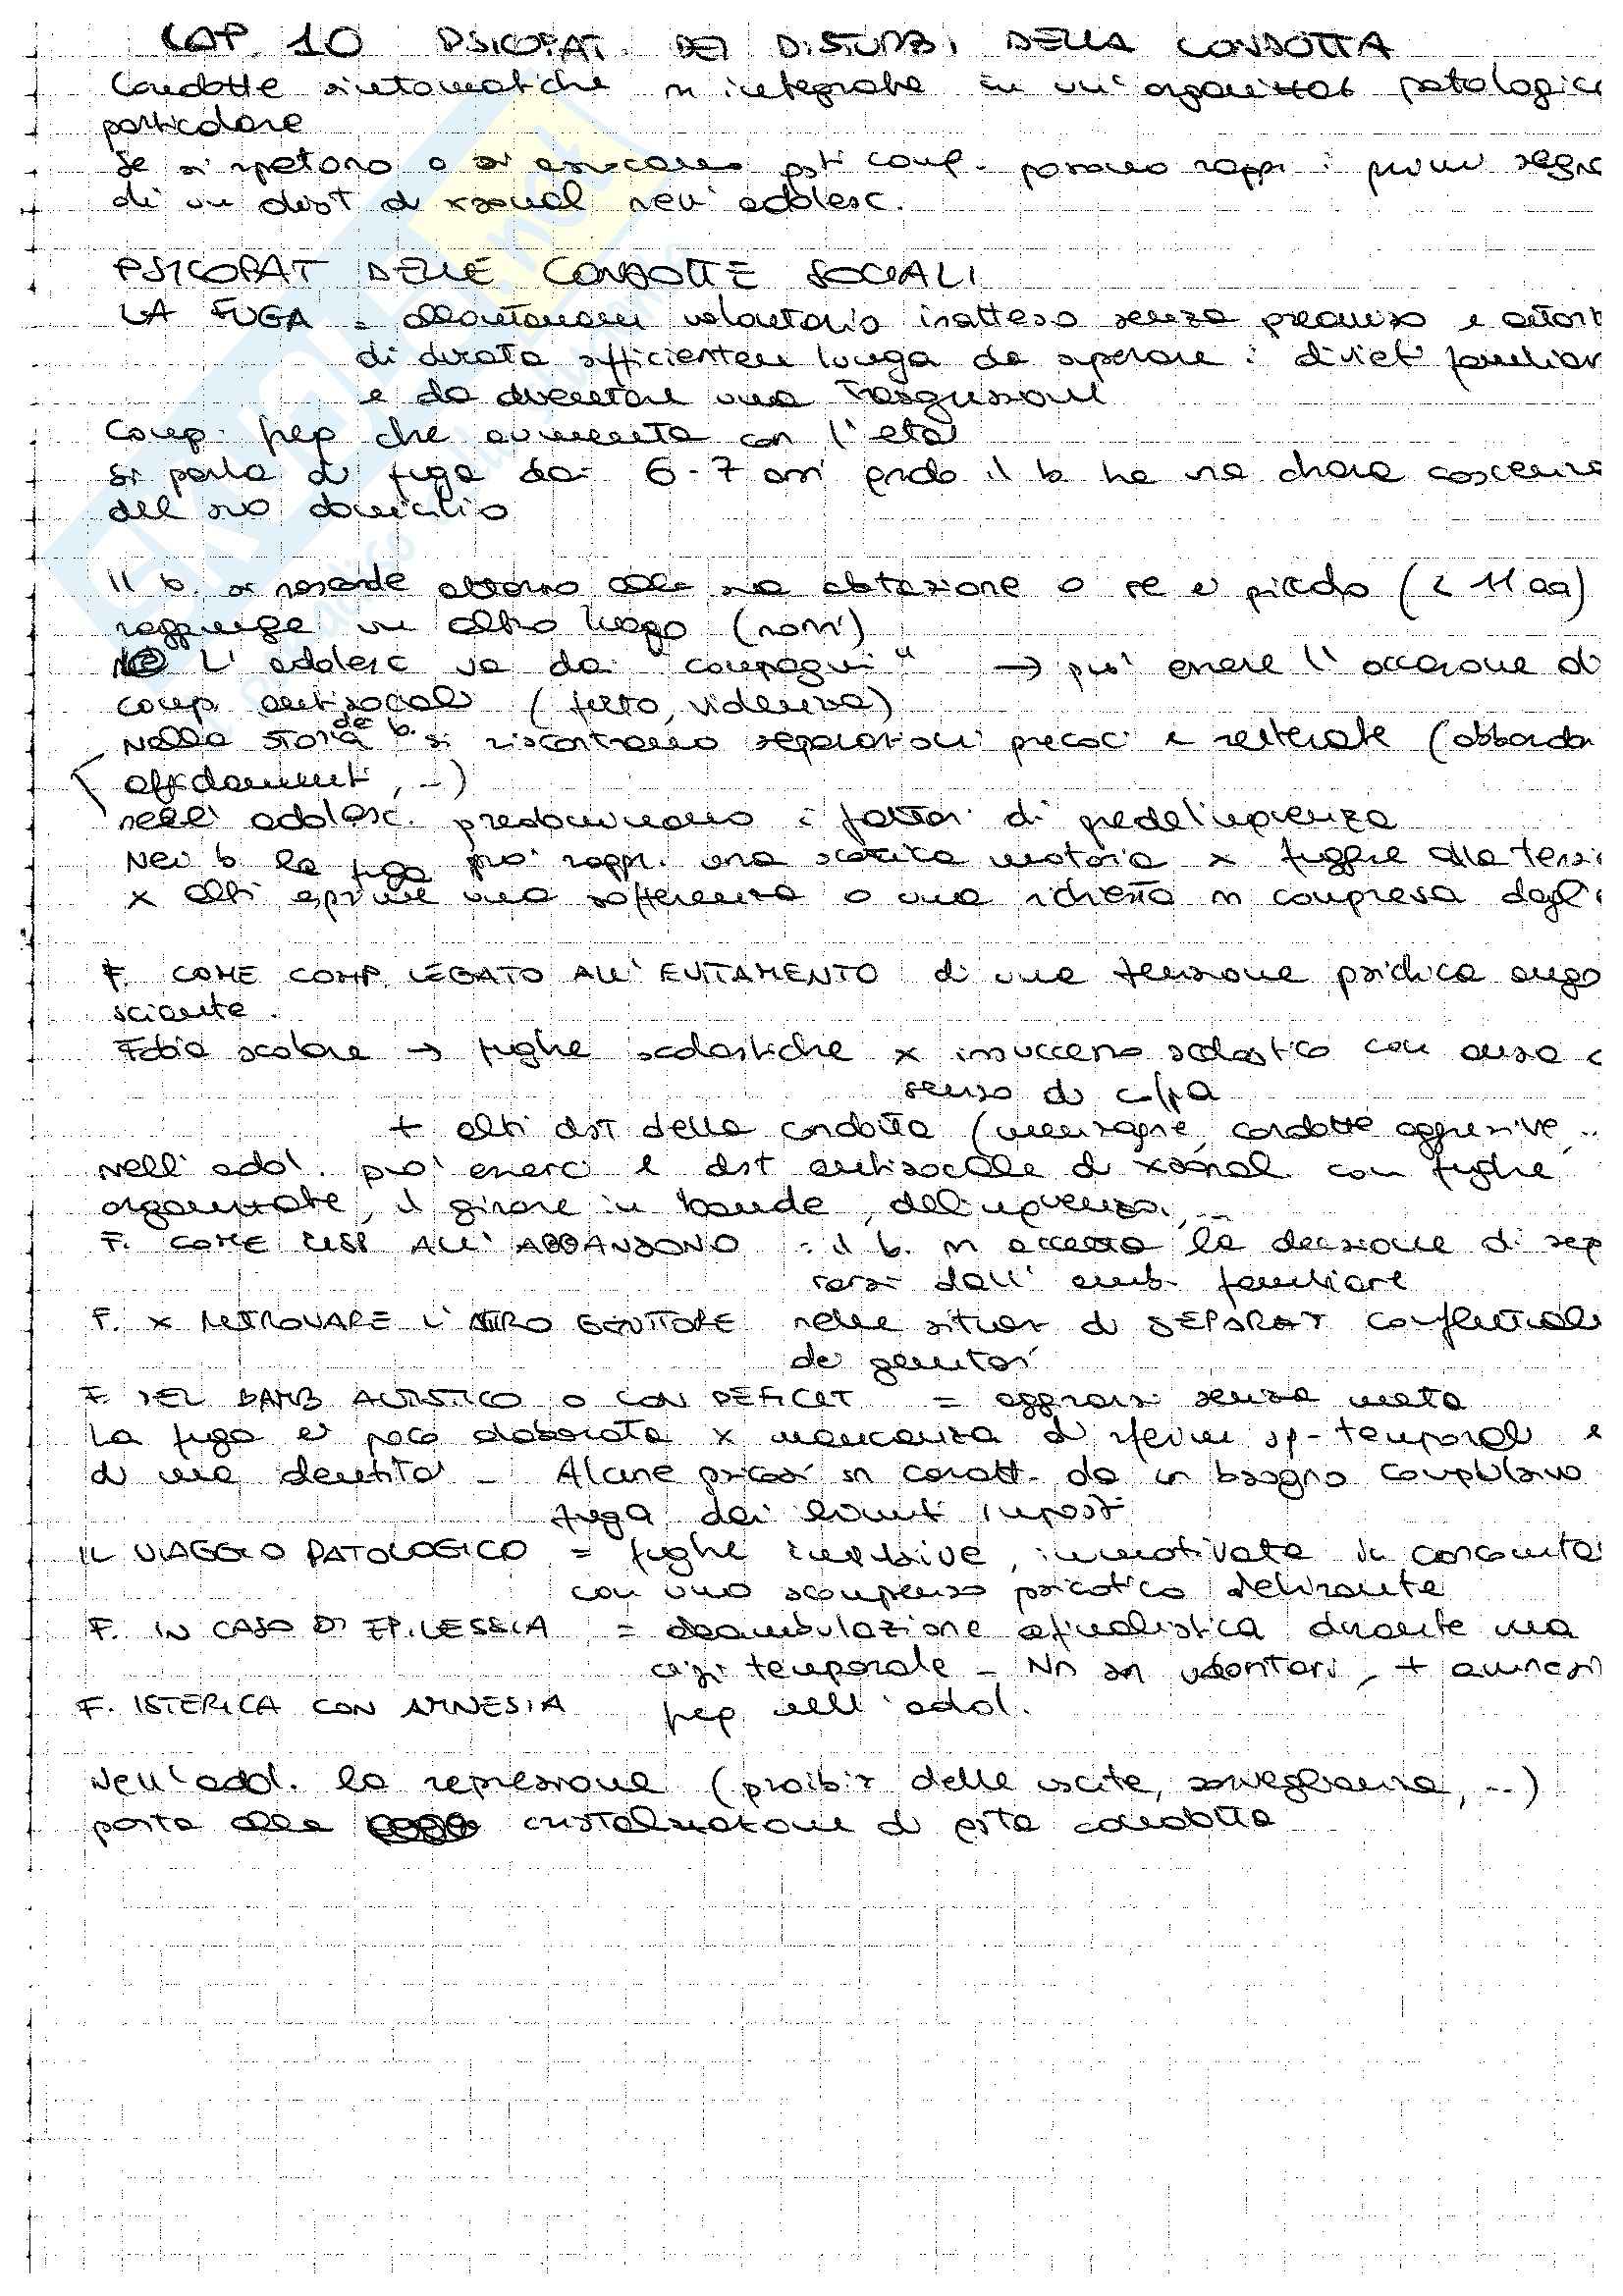 CAP. 10 PSICOPAT. DEI DISTURBI DELLA CONDOTTA
Condotte sintomatiche n integrate in un'organizzaz patologica
particolare
Se si ripetono o si associano qsti comp. possono rappr i primi segn
di un dist di xsonal nell' adolesc.
PSICOPAT DELLE CONDOTTE SOCIALI
LA FUGA = allontanam volontario inatteso senza preavviso e autori
di durata sufficientem lunga da superare i divieti familiar
e da diventare una trasgressione
Comp. freq che aumenta con l'età
Si parla di fuga dai 6-7 anni qndo il b ha una chiara coscienza
del suo domicilio
Il b. si nasconde attorno alla sua abitazione o se è piccolo (< 11 aa)
raggiunge un altro luogo (nonni)
L' adolesc va dai "compagni" → può essere l'occasione di
comp. antisociali (furto, violenza)
Nella storia de b. si riscontrano separazioni precoci e reiterate (abbando
affidamenti, ...)
nell' adolesc. predominano i fattori di predelinquenza
Nei b la fuga può rappr. una scarica motoria x fuggire alla tensi
x altri esprime una sofferenza o una richiesta n compresa dagli
F. COME COMP. LEGATO ALL' EVITAMENTO di una tensione psichica ango
sciante.
Fobia scolare → fughe scolastiche x insuccesso scolastico con ansia e
senso di colpa
+ altri dist della condotta (menzogne, condotte aggressive ..
nell' adol. può esserci 1 dist antisociale di xsonal con fughe
organizzate, il girare in bande, delinquenza, ...
F. COME RISP ALL' ABBANDONO = il b. n accetta la decisione di sepa
rarsi dall' amb. familiare
F. x RITROVARE L'ALTRO GENITORE nelle situaz di SEPARAZ conflittuali
dei genitori
F. DEL BAMB AUTISTICO O CON DEFICIT = aggirarsi senza meta
La fuga è poco elaborata x mancanza di riferim sp-temporali e
di una identità - Alcune psicosi sn caratt. da un bisogno compulsivo
fuga dai limiti imposti
IL VIAGGIO PATOLOGICO = fughe impulsive, immotivate in concomita
con uno scompenso psicotico delirante
F. IN CASO DI EPILESSIA = deambulazione afinalistica durante una
crisi temporale - Nn sn volontari, + amnesi
F. ISTERICA CON AMNESIA freq nell' adol.
Nell'adol. la repressione (proibiz delle uscite, sorveglianza, ...)
porta alla cristalizzazione di qsta condotta